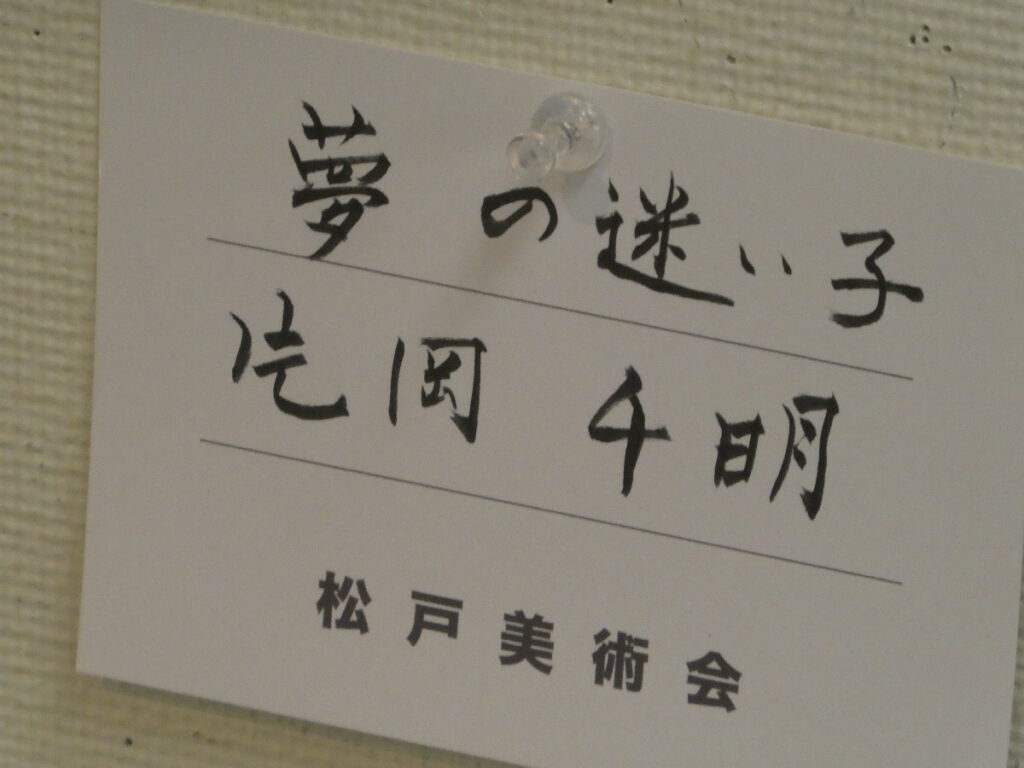 夢の迷い子
片岡 千明
松戸美術会